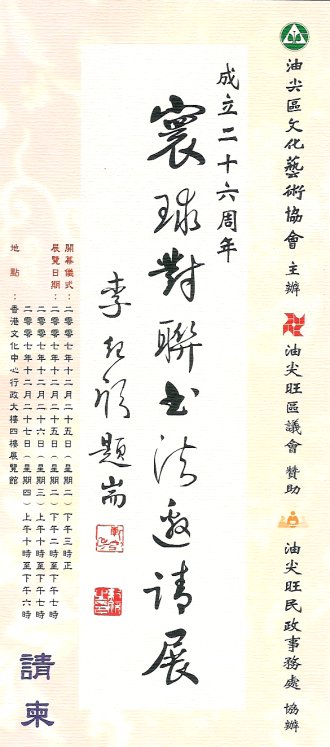 油尖區文化藝術協會 主辦 油尖旺區議會 贊助 油尖旺民政事務處 協辦
成立二十六周年
寰球對聯書法邀請展
題耑
開幕儀式：二零零七年十二月二十五日（星期二）下午三時正
展覽日期：二零零七年十二月二十五日（星期二）下午二時至下午七時
二零零七年十二月二十六日（星期三）上午十時至下午七時
二零零七年十二月二十七日（星期四）上午十時至下午六時
地點：香港文化中心行政大樓四樓展覽館
請柬